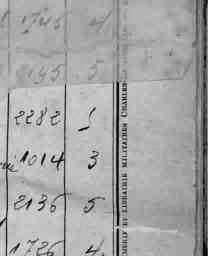 1746 4
2195 5
2282 5
1014 3
2136 5
1726 4
LIBRAIRIE MILITAIRES CHARLES